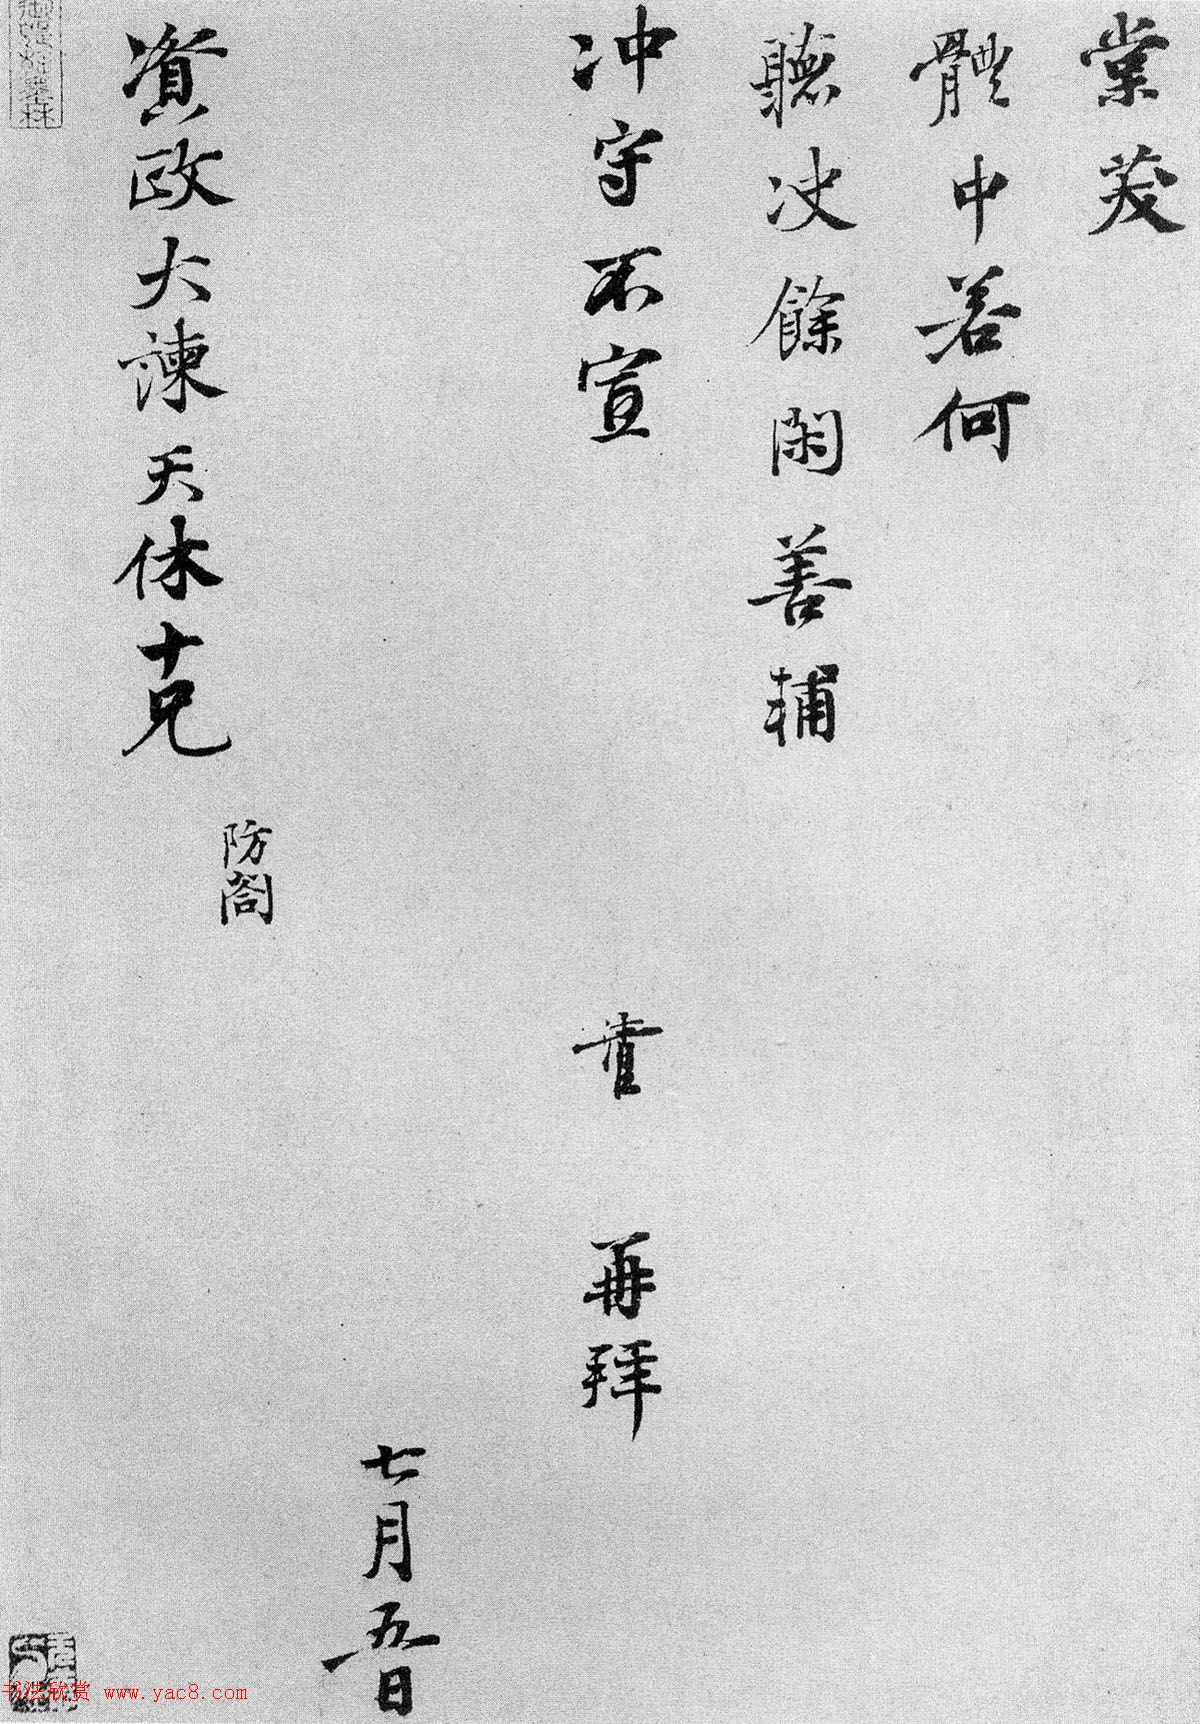 棠茇
體中若何
聽决餘閑善輔
冲守不宣
再拜
七月五日
防閤
資政大諫天休十兄
书法欣赏 www.yac8.com